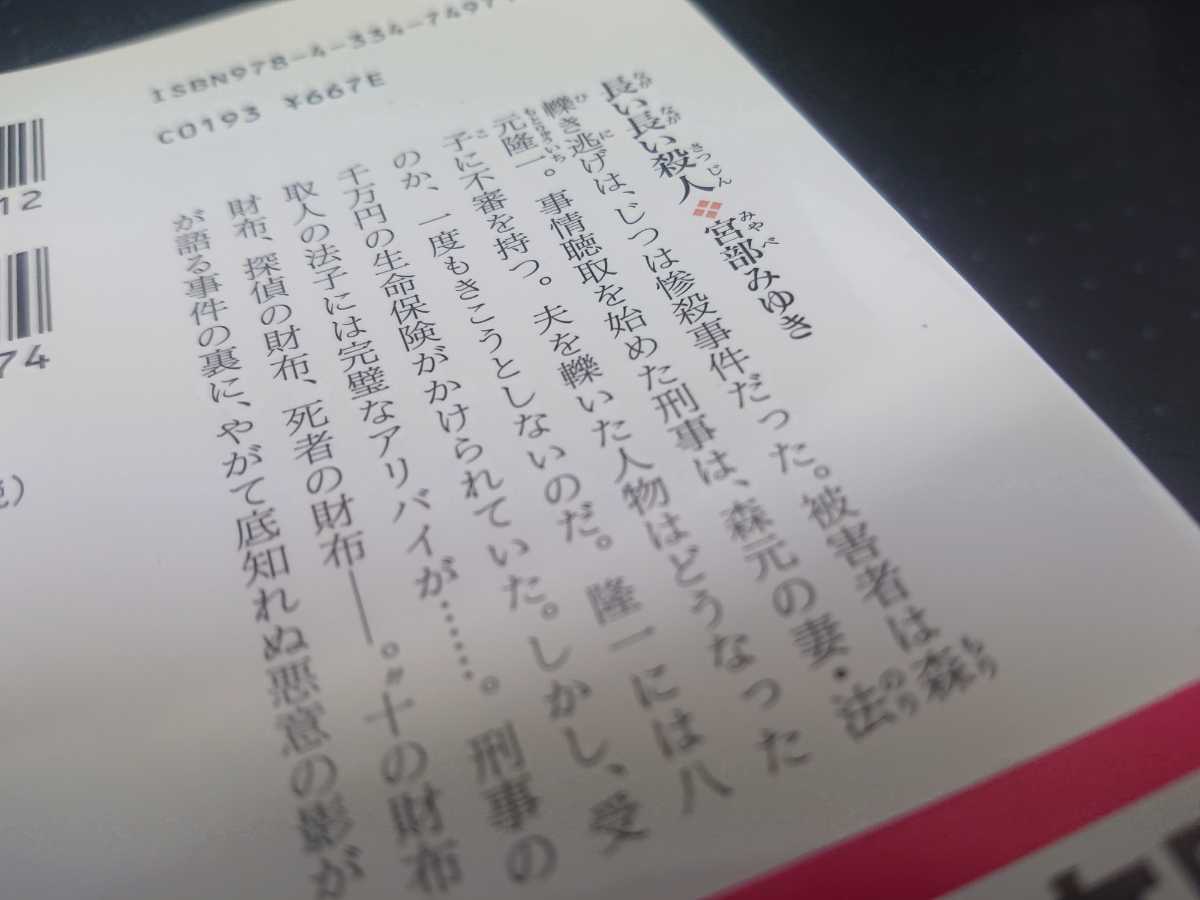 ISBN978-4-334-7497
C0193 ¥667E
12
74
長い長い殺人 宮部みゆき
轢き逃げは、じつは惨殺事件だった。被害者は森
元隆一。事情聴取を始めた刑事は、森元の妻・法
子に不審を持つ。夫を轢いた人物はどうなった
のか、一度もきこうとしないのだ。隆一には八
千万円の生命保険がかけられていた。しかし、受
取人の法子には完璧なアリバイが……。刑事の
財布、探偵の財布、死者の財布――。〝十の財布
が語る事件の裏に、やがて底知れぬ悪意の影が